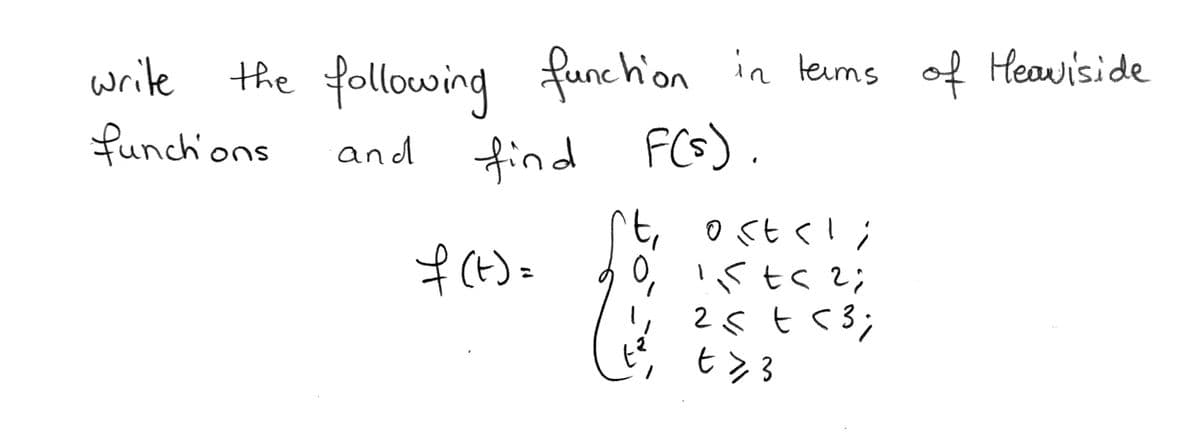 write the following function in terms of Heaviside
functions and find F(s).
f(t) = { t, 0 ≤ t < 1;
0, 1 ≤ t < 2;
1, 2 ≤ t < 3;
t², t ≥ 3